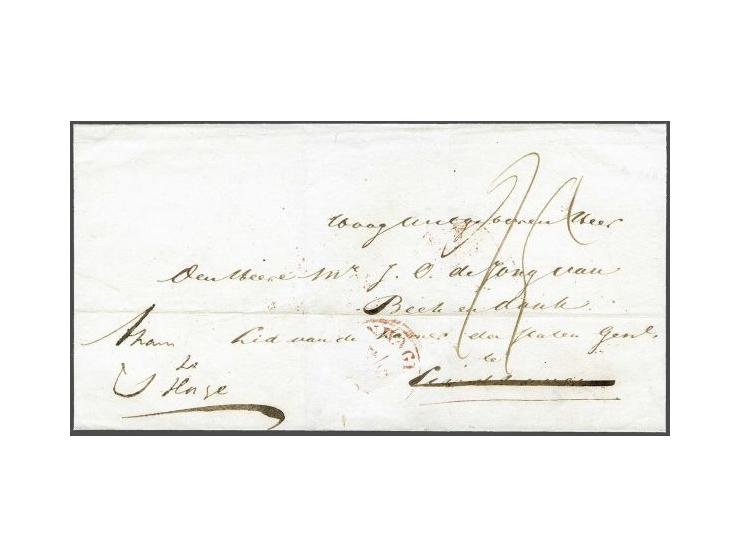 Hoog Welgeboren Heer
Den Heere Mr. J. O. de Jong van
Beek en Donk
Lid van de Kamer der Staten Genl.
te
thans
te
S Hage